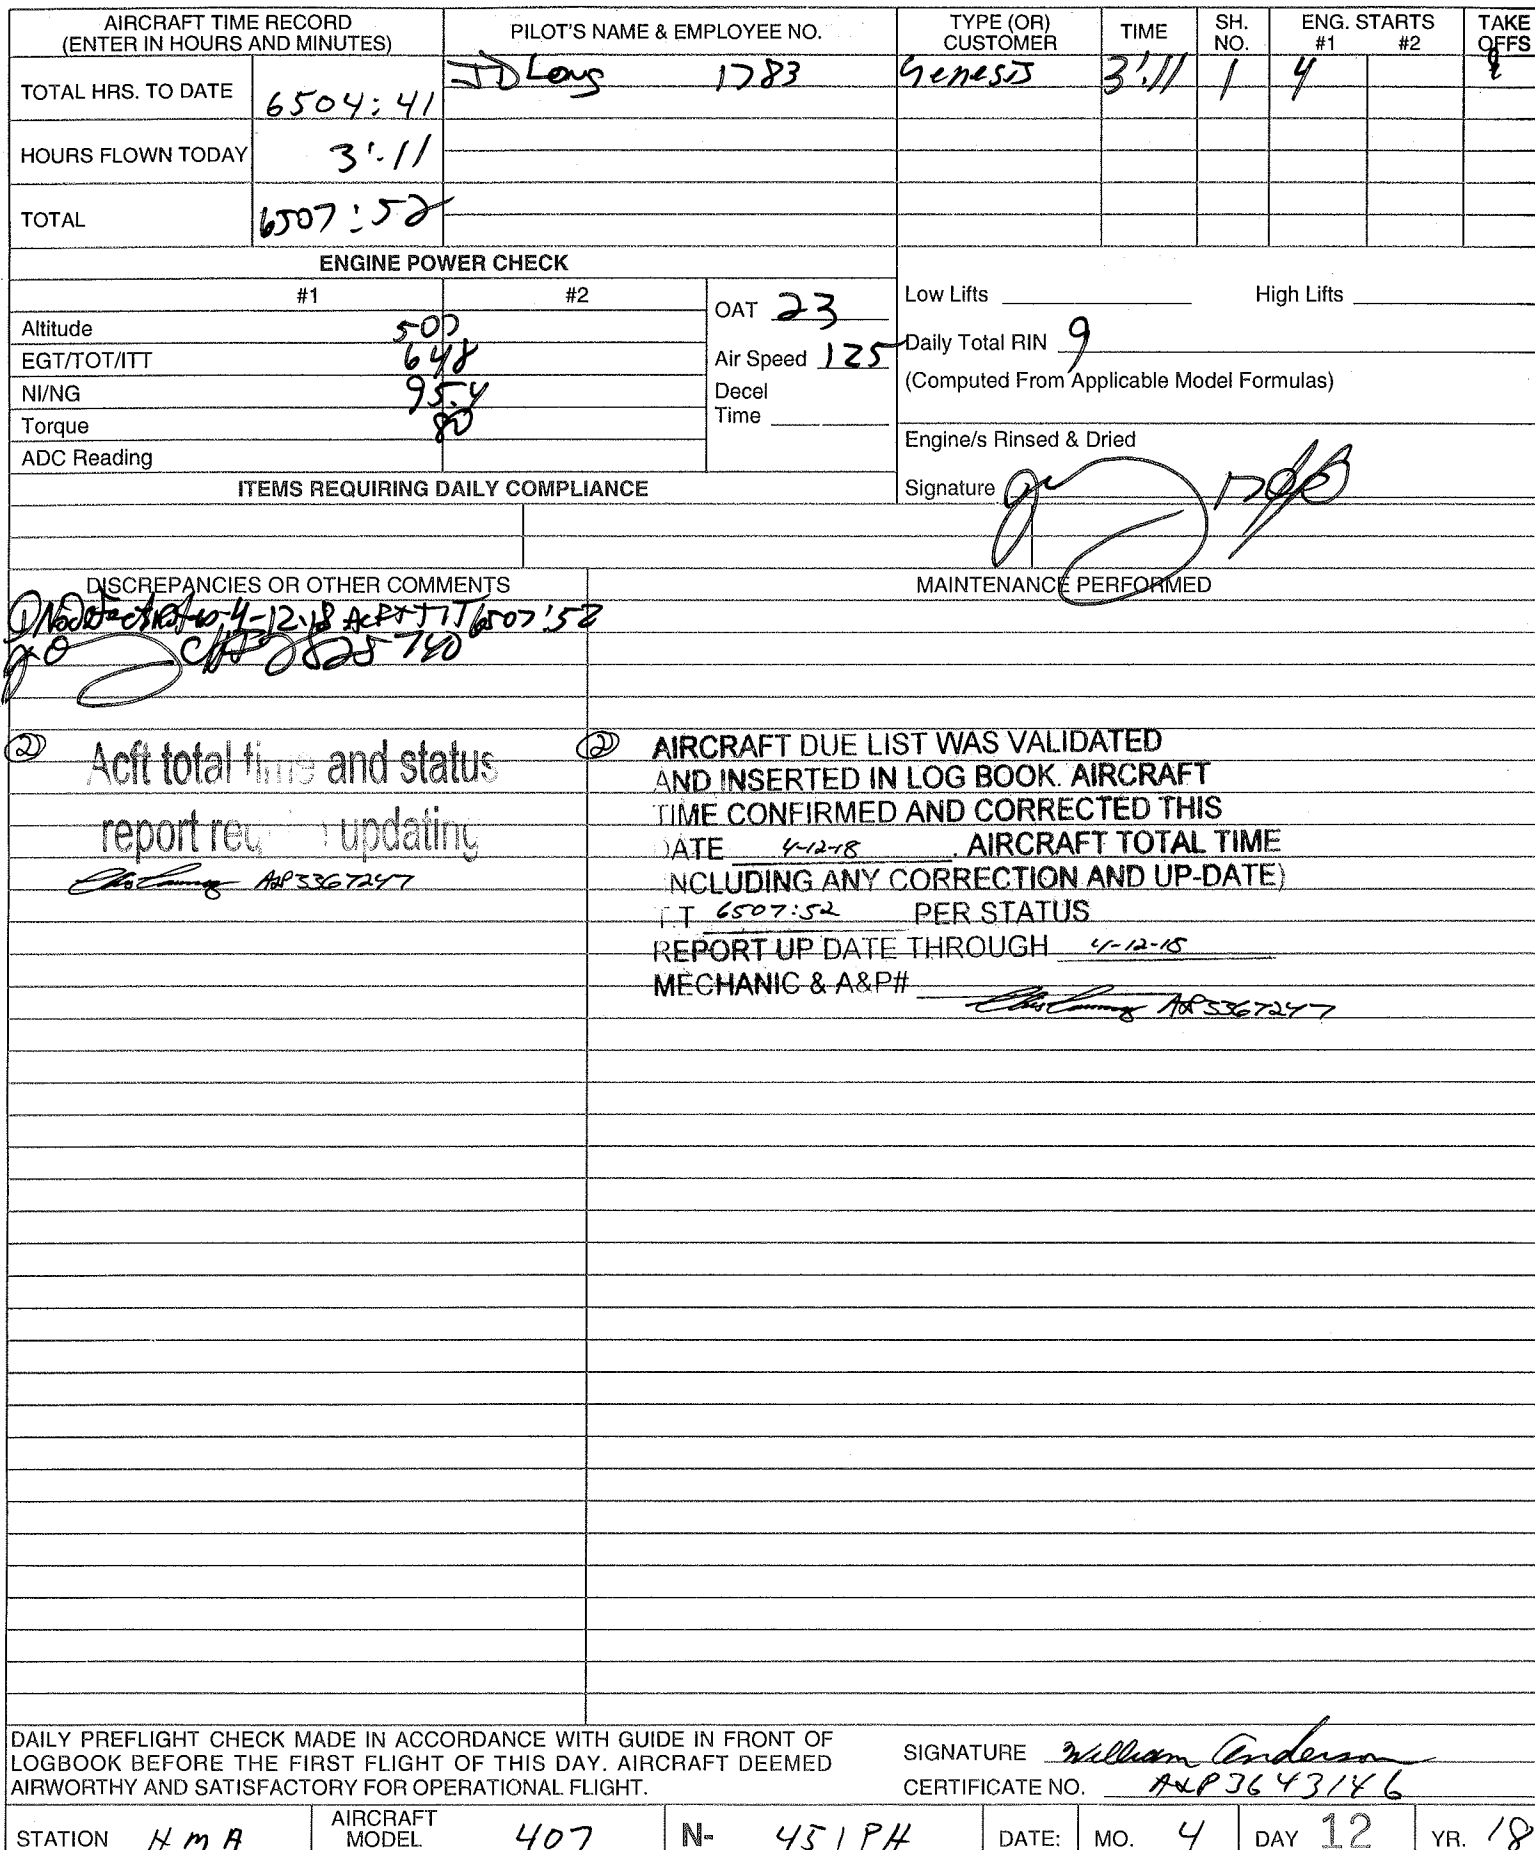 AIRCRAFT TIME RECORD
(ENTER IN HOURS AND MINUTES)
PILOT'S NAME & EMPLOYEE NO.
TYPE (OR)
CUSTOMER
TIME
SH.
NO.
ENG. STARTS
#1 #2
TAKE
OFFS
JD Long 1783 Genesis 3:11 1 4
TOTAL HRS. TO DATE 6504:41
HOURS FLOWN TODAY 3:11
TOTAL 6507:52
ENGINE POWER CHECK
#1 #2
Altitude 500
EGT/TOT/ITT 648
NI/NG 95.4
Torque 80
ADC Reading
OAT 23
Air Speed 125
Decel
Time
Low Lifts High Lifts
Daily Total RIN 9
(Computed From Applicable Model Formulas)
Engine/s Rinsed & Dried
Signature
ITEMS REQUIRING DAILY COMPLIANCE
DISCREPANCIES OR OTHER COMMENTS
MAINTENANCE PERFORMED
① No 4-12-18 6507:52
2825740
② Acft total time and status
report updating
A&P3367247
② AIRCRAFT DUE LIST WAS VALIDATED
AND INSERTED IN LOG BOOK. AIRCRAFT
TIME CONFIRMED AND CORRECTED THIS
DATE 4-12-18 . AIRCRAFT TOTAL TIME
INCLUDING ANY CORRECTION AND UP-DATE)
T.T 6507:52 PER STATUS
REPORT UP DATE THROUGH 4-12-18
MECHANIC & A&P#
A&P3367247
DAILY PREFLIGHT CHECK MADE IN ACCORDANCE WITH GUIDE IN FRONT OF
LOGBOOK BEFORE THE FIRST FLIGHT OF THIS DAY. AIRCRAFT DEEMED
AIRWORTHY AND SATISFACTORY FOR OPERATIONAL FLIGHT.
SIGNATURE William Anderson
CERTIFICATE NO. A&P3643146
STATION HMA
AIRCRAFT
MODEL 407
N- 451PH
DATE: MO. 4 DAY 12 YR. 18